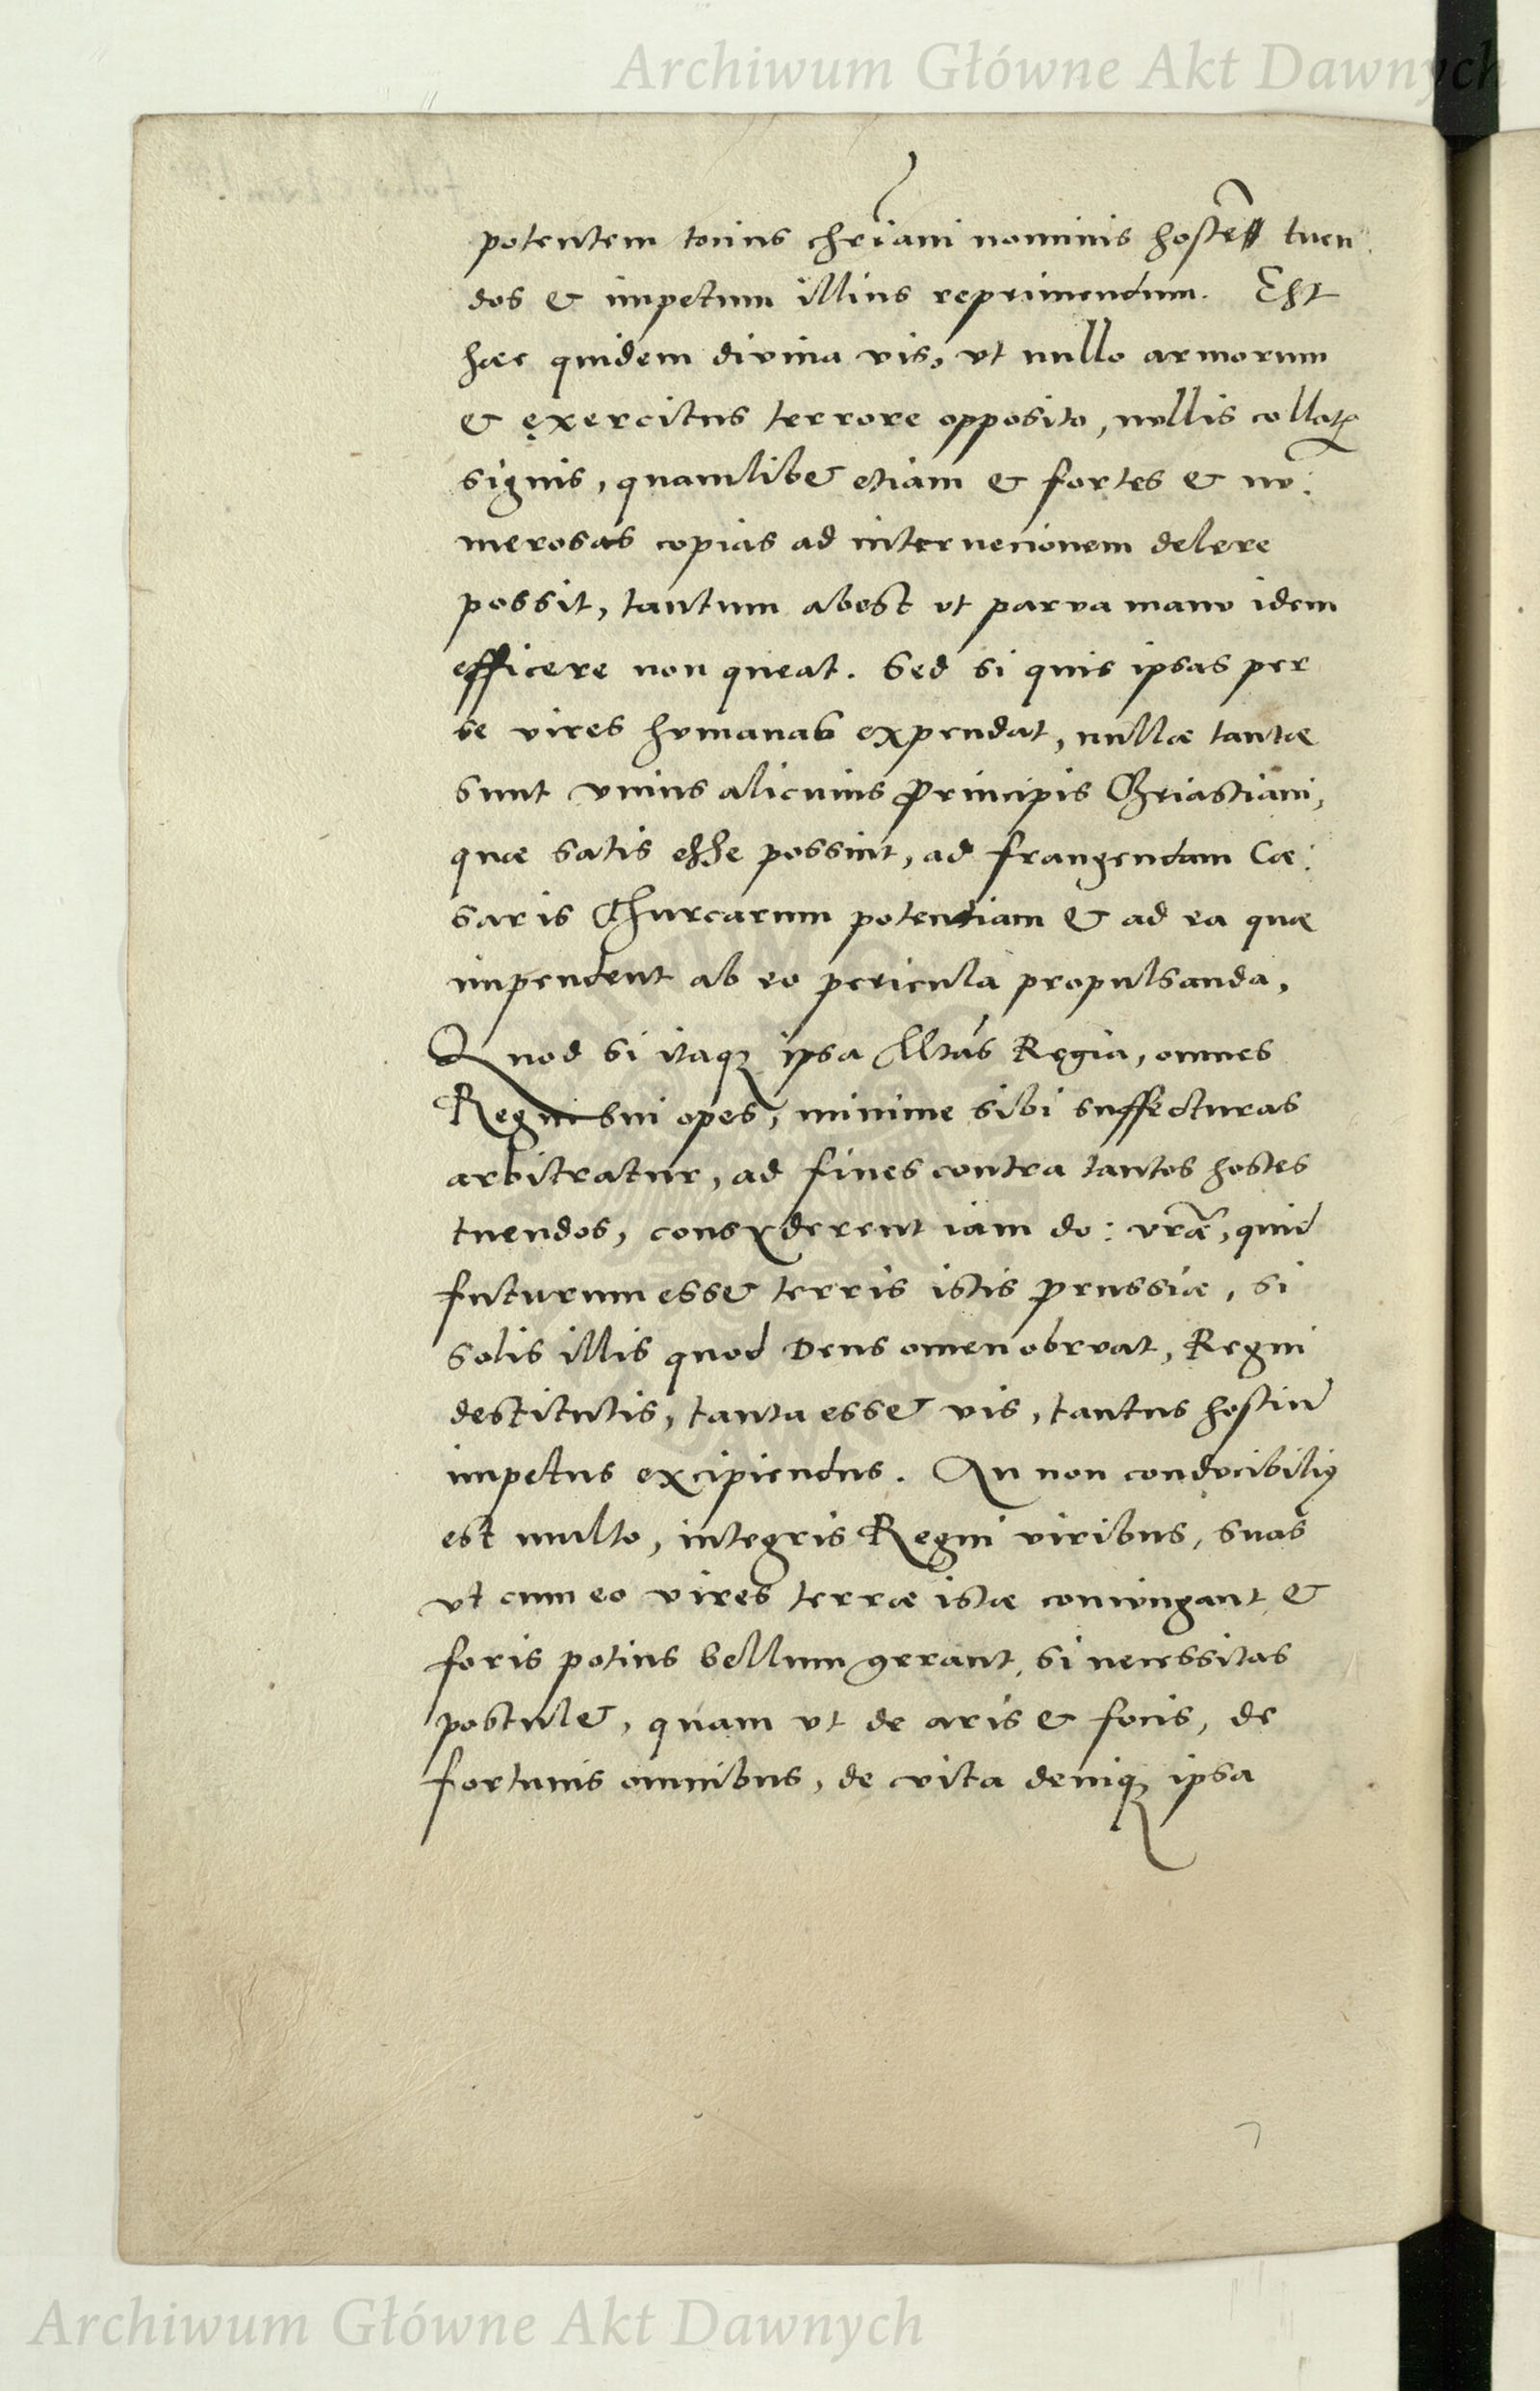 Archiwum Główne Akt Dawnych
potentem totius chriani nominis hostē tuen
dos & impetum illius reprimendum. Est
haec quidem divina vis, vt nullo armorum
& exercitus terrore opposito, nullis collatis
signis, quamlibet etiam & fortes & nu:
merosas copias ad internecionem delere
possit, tantum abest ut parva manu idem
efficere non queat. Sed si quis ipsas per
se vires humanas expendat, nullae tantae
sunt vnius alicuius Principis Christiani,
quae satis esse possint, ad frangendam Cae:
saris Thurcarum potentiam & ad ea quae
impendent ab eo pericula propulsanda.
Quod si itaq ipsa Mtas Regia, omnes
Regni sui opes, minime sibi suffecturas
arbitratur, ad fines contra tantos hostes
tuendos, consyderent iam do: vrae, quid
futurum esset terris istis Prussiae, si
solis illis quod Deus omen obruat, Regni
destitutis, tanta esset vis, tantus hostiū
impetus excipiendus. An non conducibiliꝰ
est multo, integris Regni viribus, suas
vt cum eo vires terrae istae coniungant &
foris potius bellum gerant, si necessitas
postulet, quam ut de aris & focis, de
fortunis omnibus, de vita deniq ipsa
Archiwum Główne Akt Dawnych